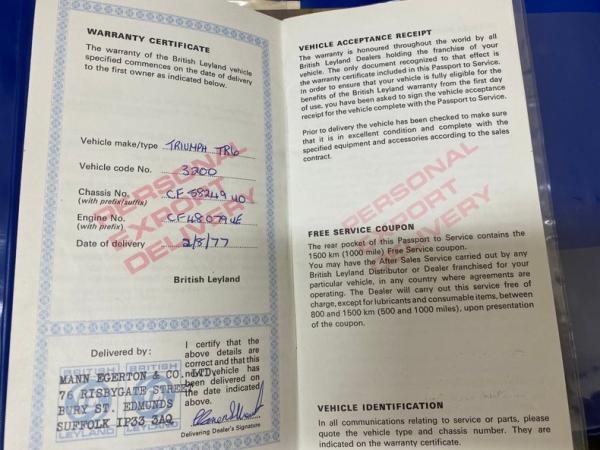 WARRANTY CERTIFICATE
The warranty of the British Leyland vehicle
specified commences on the date of delivery
to the first owner as indicated below.
Vehicle make/type TRIUMPH TR6
Vehicle code No. 3200
Chassis No. CF 58249 UO
(with prefix/suffix)
Engine No. CF 48079 UE
(with prefix)
Date of delivery 2/8/77
British Leyland
PERSONAL
EXPORT
DELIVERY
Delivered by:
MANN EGERTON & CO. LTD
76 RISBYGATE STREET
BURY ST. EDMUNDS
SUFFOLK IP33 3AQ
BRITISH
LEYLAND
BRITISH
LEYLAND
I certify that the
above details are
correct and that this
vehicle has
been delivered on
the date indicated
above.
Delivering Dealer's Signature
VEHICLE ACCEPTANCE RECEIPT
The warranty is honoured throughout the world by all
British Leyland Dealers holding the franchise of your
vehicle. The only document recognized to that effect is
the warranty certificate included in this Passport to Service.
In order to ensure that your vehicle is fully eligible for the
benefits of the British Leyland warranty from the first day
of use, you have been asked to sign the vehicle acceptance
receipt for the vehicle complete with the Passport to Service.
Prior to delivery the vehicle has been checked to make sure
that it is in excellent condition and complete with the
specified equipment and accessories according to the sales
contract.
PERSONAL
EXPORT
DELIVERY
FREE SERVICE COUPON
The rear pocket of this Passport to Service contains the
1500 km (1000 mile) Free Service coupon.
You may have the After Sales Service carried out by any
British Leyland Distributor or Dealer franchised for your
particular vehicle, in any country where agreements are
operating. The Dealer will carry out this service free of
charge, except for lubricants and consumable items, between
800 and 1500 km (500 and 1000 miles), upon presentation
of the coupon.
VEHICLE IDENTIFICATION
In all communications relating to service or parts, please
quote the vehicle type and chassis number. They are
indicated on the warranty certificate.